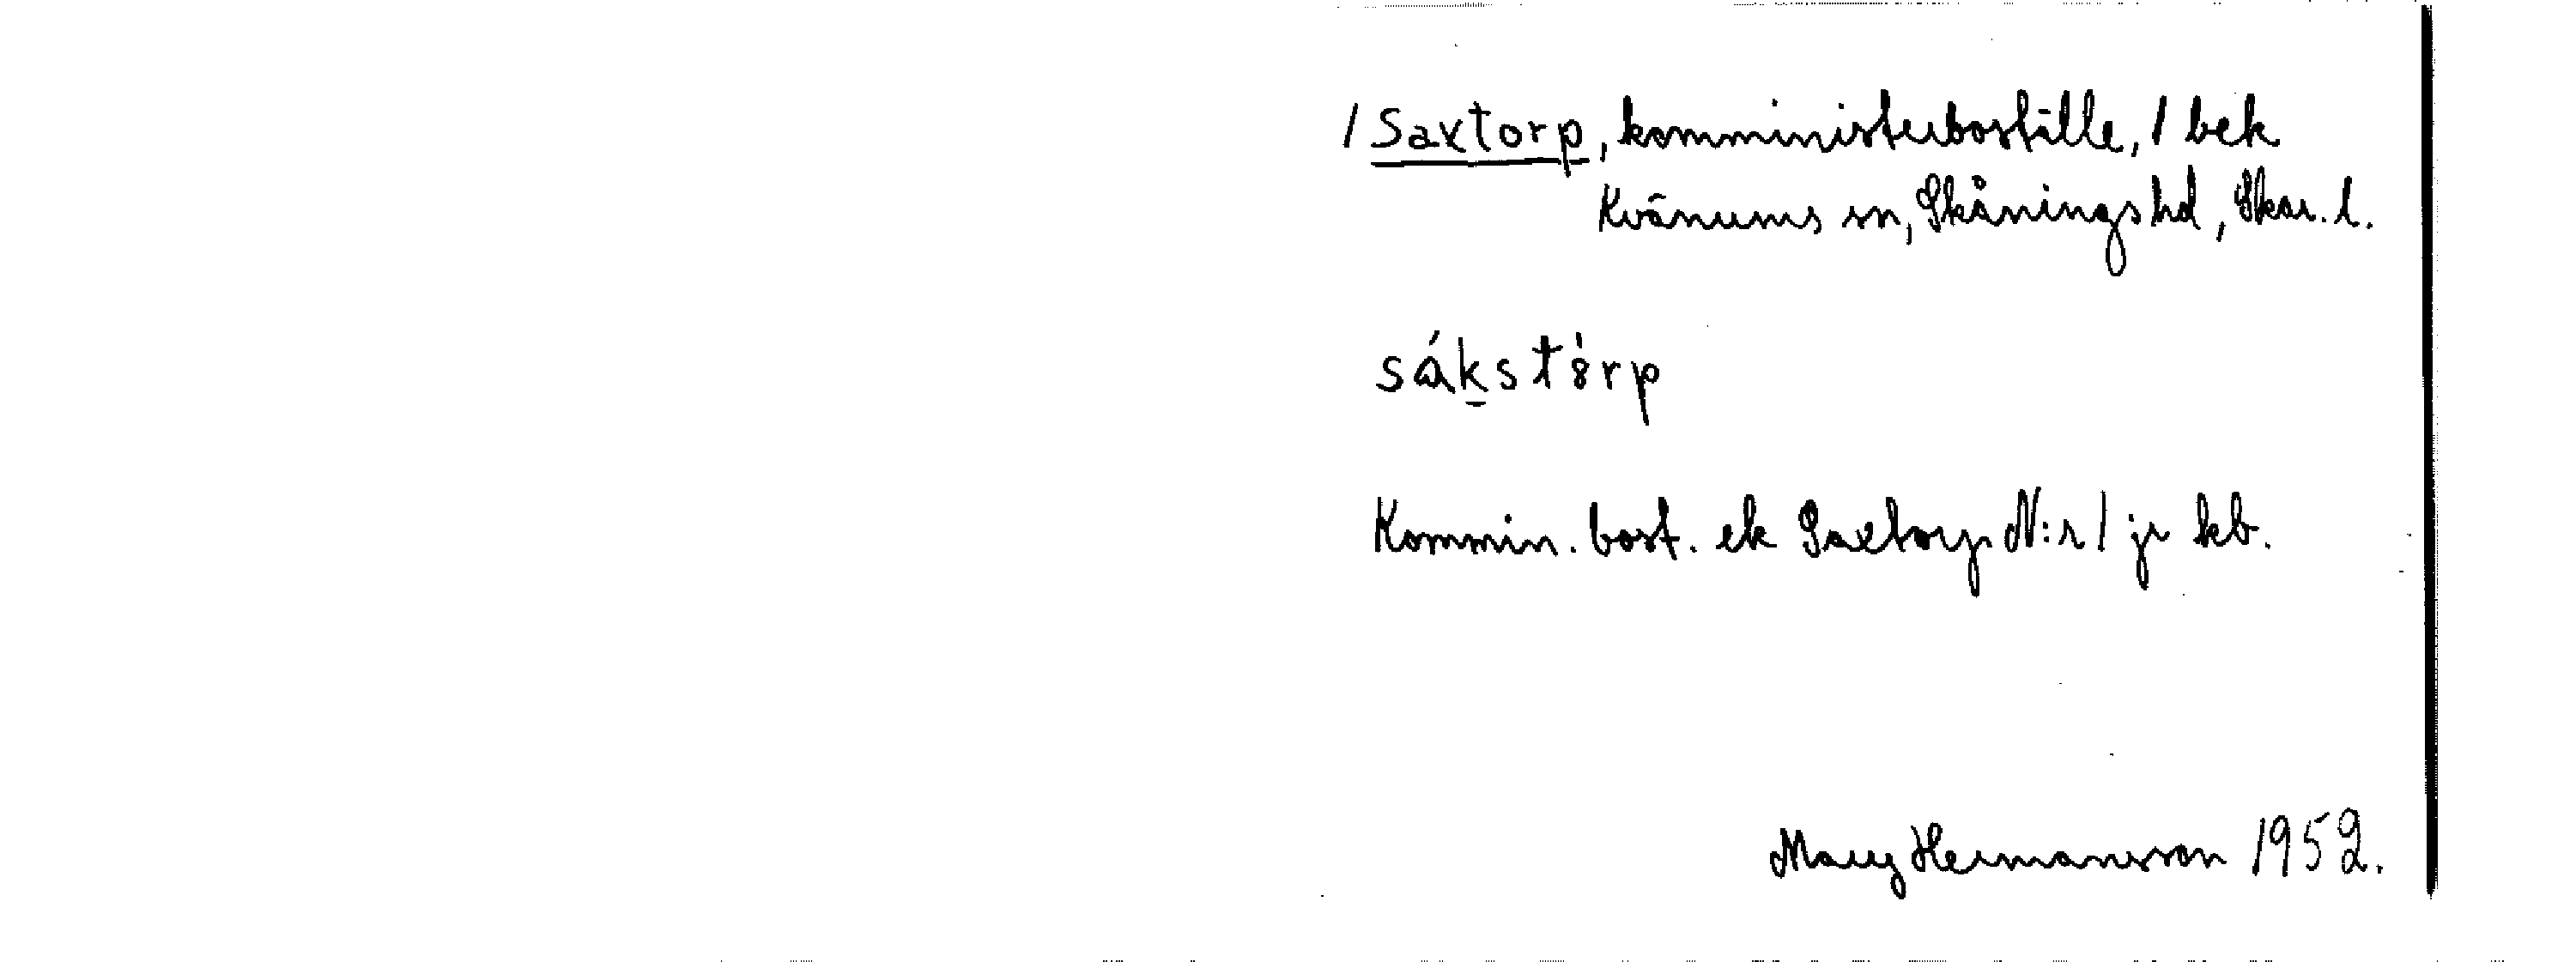 / Saxtorp, komministerboställe, 1 bek
Kvänums sn, Skånings hd, Skar. l.
sákstò̀rp
Kommin. bost. ek Saxtorp N:r 1 jr kb.
Mary Hermansson 1952.